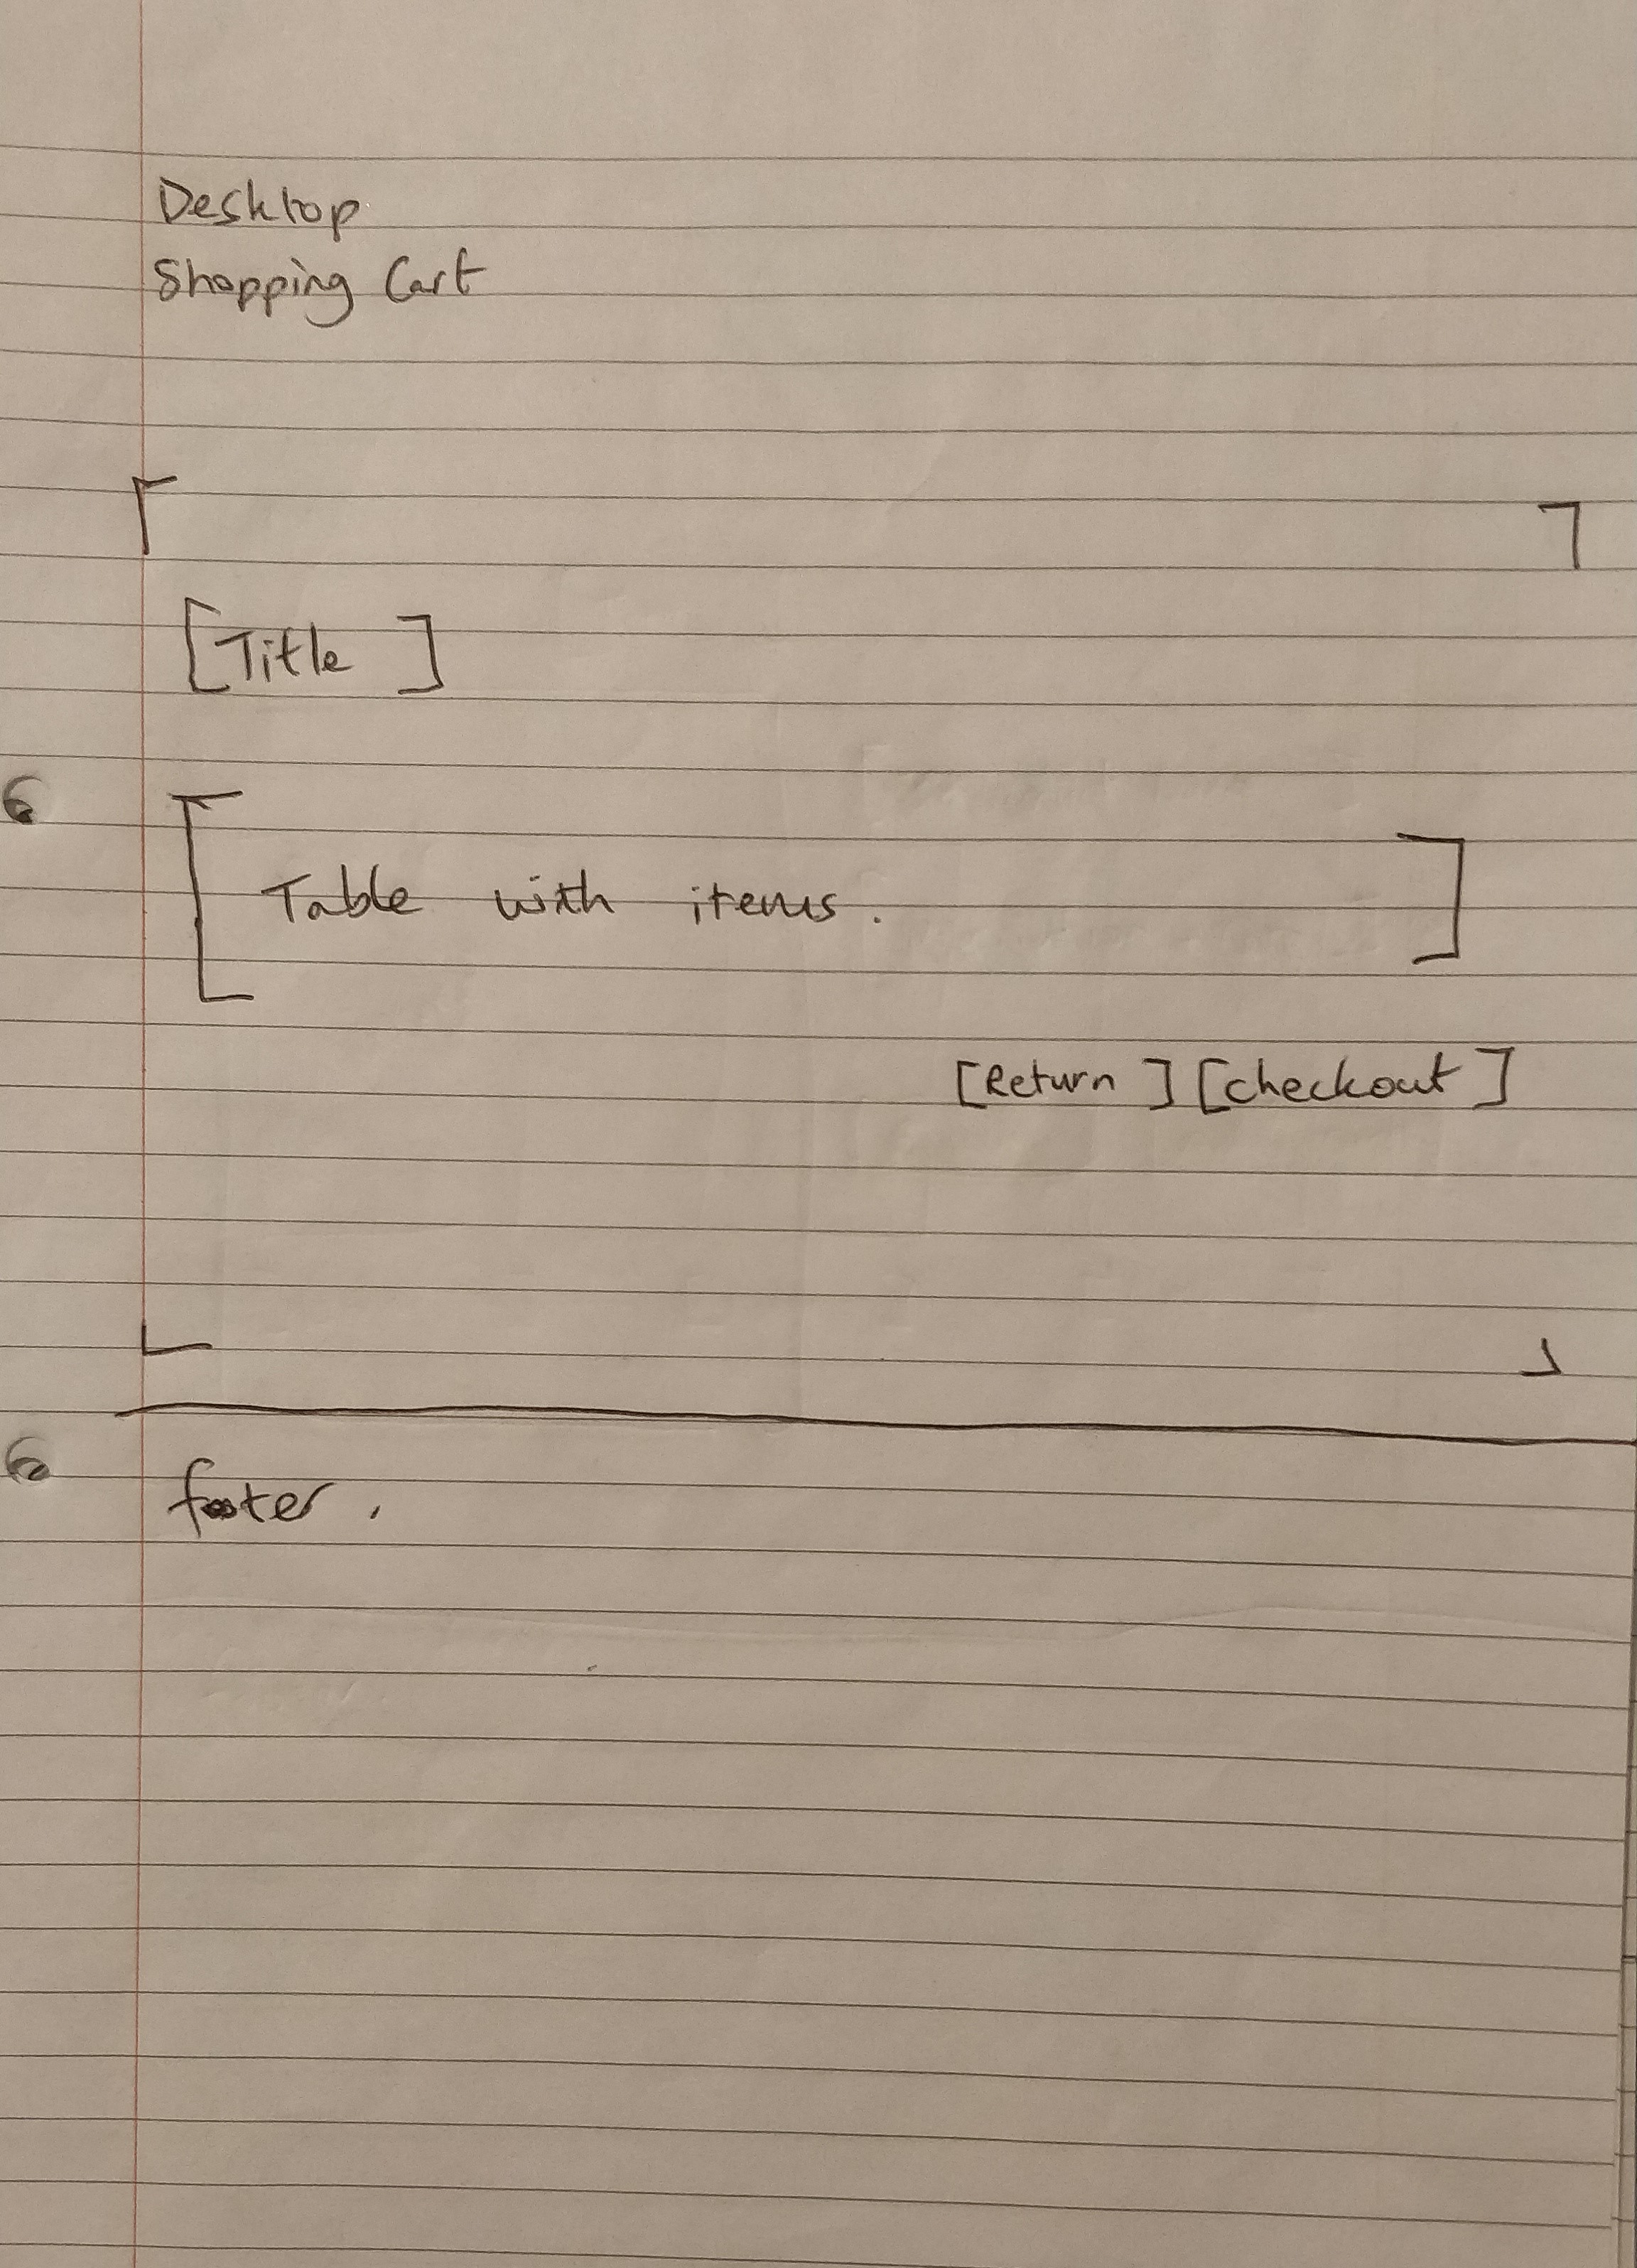 Desktop
Shopping Cart
[Title]
[Table with items.]
[Return] [checkout]
footer.